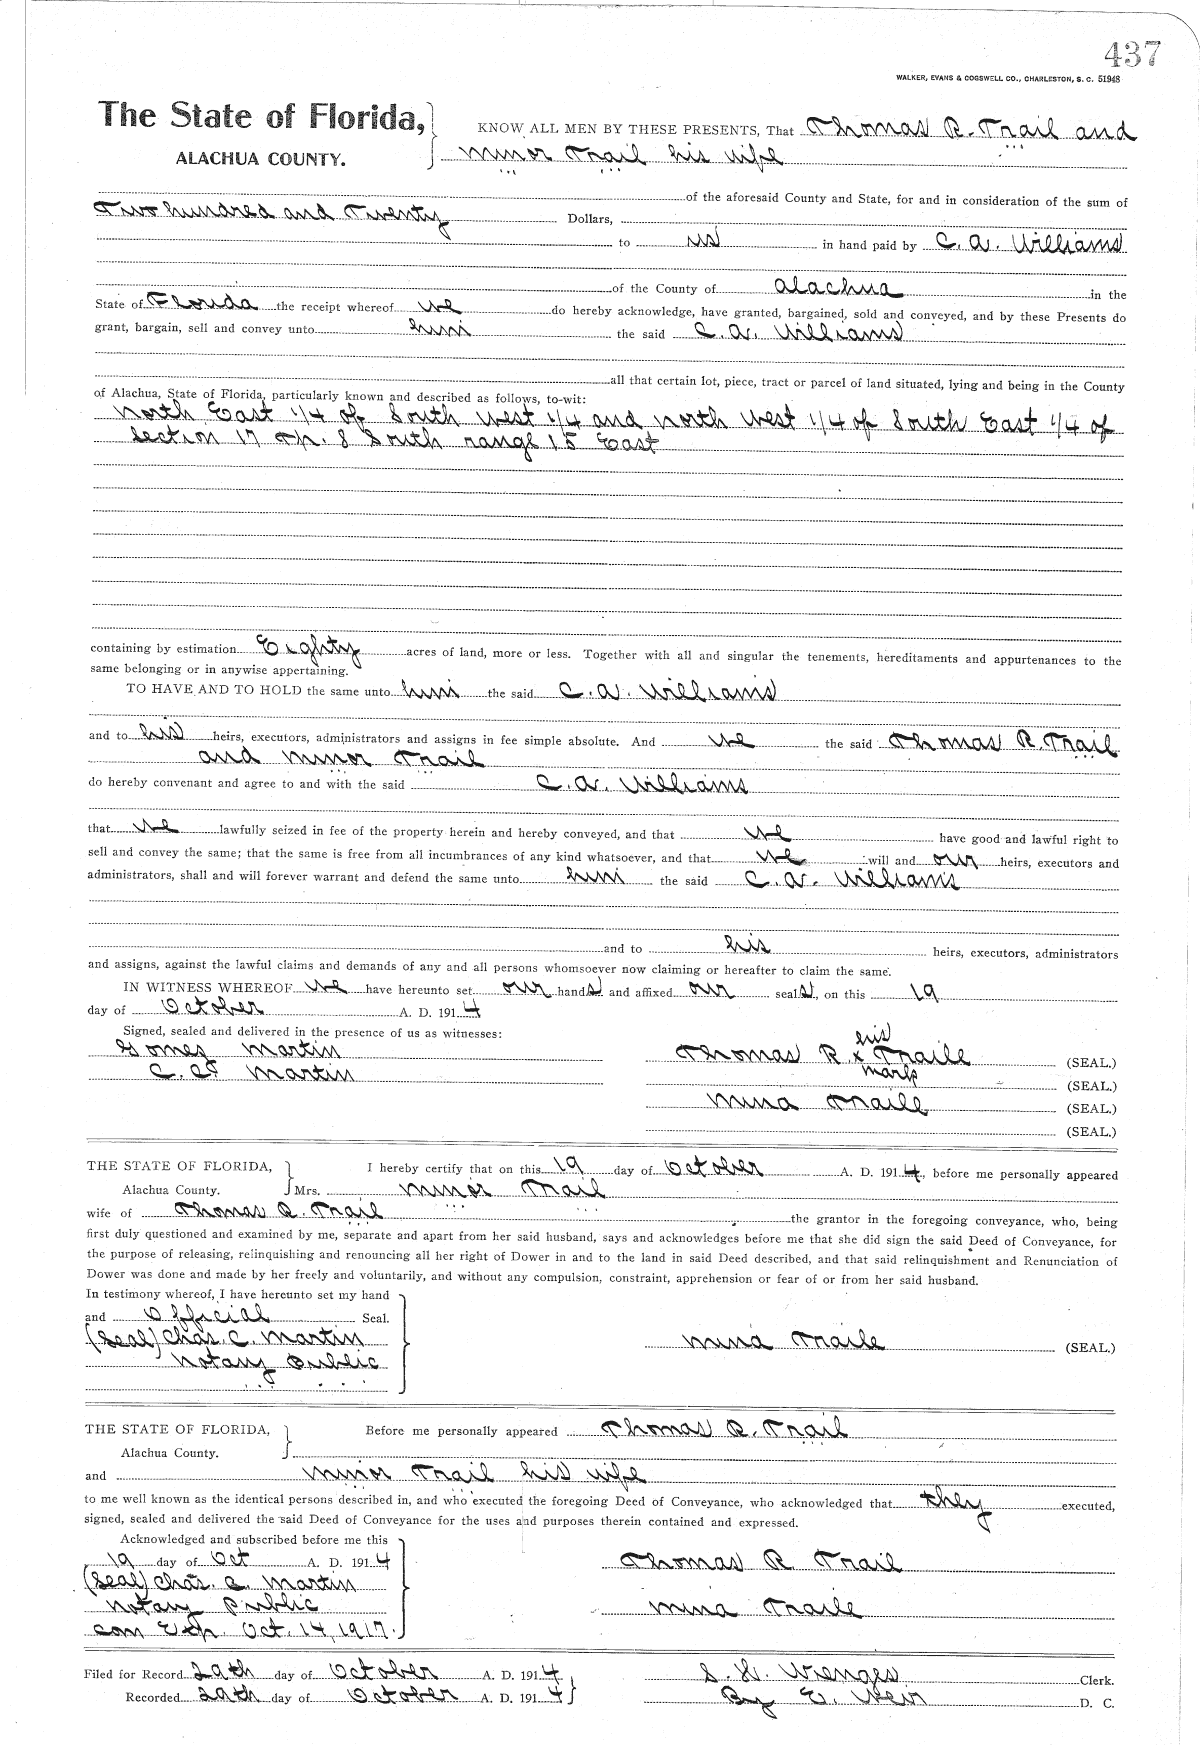 437
WALKER, EVANS & COGSWELL CO., CHARLESTON, S. C. 51948
The State of Florida,
ALACHUA COUNTY.
KNOW ALL MEN BY THESE PRESENTS, That Thomas R. Trail and
Minor Trail his wife
of the aforesaid County and State, for and in consideration of the sum of
Two hundred and Twenty Dollars,
to us in hand paid by C. A. Williams
of the County of Alachua in the
State of Florida the receipt whereof we do hereby acknowledge, have granted, bargained, sold and conveyed, and by these Presents do
grant, bargain, sell and convey unto him the said C. A. Williams
all that certain lot, piece, tract or parcel of land situated, lying and being in the County
of Alachua, State of Florida, particularly known and described as follows, to-wit:
North East 1/4 of South West 1/4 and North West 1/4 of South East 1/4 of
Section 17 Tp. 8 South range 15 East
containing by estimation Eighty acres of land, more or less. Together with all and singular the tenements, hereditaments and appurtenances to the
same belonging or in anywise appertaining.
TO HAVE AND TO HOLD the same unto him the said C. A. Williams
and to his heirs, executors, administrators and assigns in fee simple absolute. And we the said Thomas R. Trail
and Minor Trail
do hereby convenant and agree to and with the said C. A. Williams
that we lawfully seized in fee of the property herein and hereby conveyed, and that we have good and lawful right to
sell and convey the same; that the same is free from all incumbrances of any kind whatsoever, and that we will and our heirs, executors and
administrators, shall and will forever warrant and defend the same unto him the said C. A. Williams
and to his heirs, executors, administrators
and assigns, against the lawful claims and demands of any and all persons whomsoever now claiming or hereafter to claim the same.
IN WITNESS WHEREOF we have hereunto set our hands and affixed our seals, on this 19
day of October A. D. 1914
Signed, sealed and delivered in the presence of us as witnesses:
Martin
his
Thomas R x Traile (SEAL.)
mark
C. Martin
(SEAL.)
Mina Traile (SEAL.)
(SEAL.)
THE STATE OF FLORIDA,
Alachua County.
I hereby certify that on this 19 day of October A. D. 1914, before me personally appeared
Mrs. Minor Trail
wife of Thomas R. Trail the grantor in the foregoing conveyance, who, being
first duly questioned and examined by me, separate and apart from her said husband, says and acknowledges before me that she did sign the said Deed of Conveyance, for
the purpose of releasing, relinquishing and renouncing all her right of Dower in and to the land in said Deed described, and that said relinquishment and Renunciation of
Dower was done and made by her freely and voluntarily, and without any compulsion, constraint, apprehension or fear of or from her said husband.
In testimony whereof, I have hereunto set my hand
and Official Seal.
(Seal) Chas. C. Martin
Notary Public
Mina Traile (SEAL.)
THE STATE OF FLORIDA,
Alachua County.
Before me personally appeared Thomas R. Trail
and Minor Trail his wife
to me well known as the identical persons described in, and who executed the foregoing Deed of Conveyance, who acknowledged that they executed,
signed, sealed and delivered the said Deed of Conveyance for the uses and purposes therein contained and expressed.
Acknowledged and subscribed before me this
19 day of Oct A. D. 1914
(Seal) Chas. C. Martin
Notary Public
Com Exp. Oct. 14, 1917.
Thomas R Trail
Mina Traile
Filed for Record 29th day of October A. D. 1914
Recorded 29th day of October A. D. 1914
S. H. Wienges Clerk.
By E. Weir D. C.